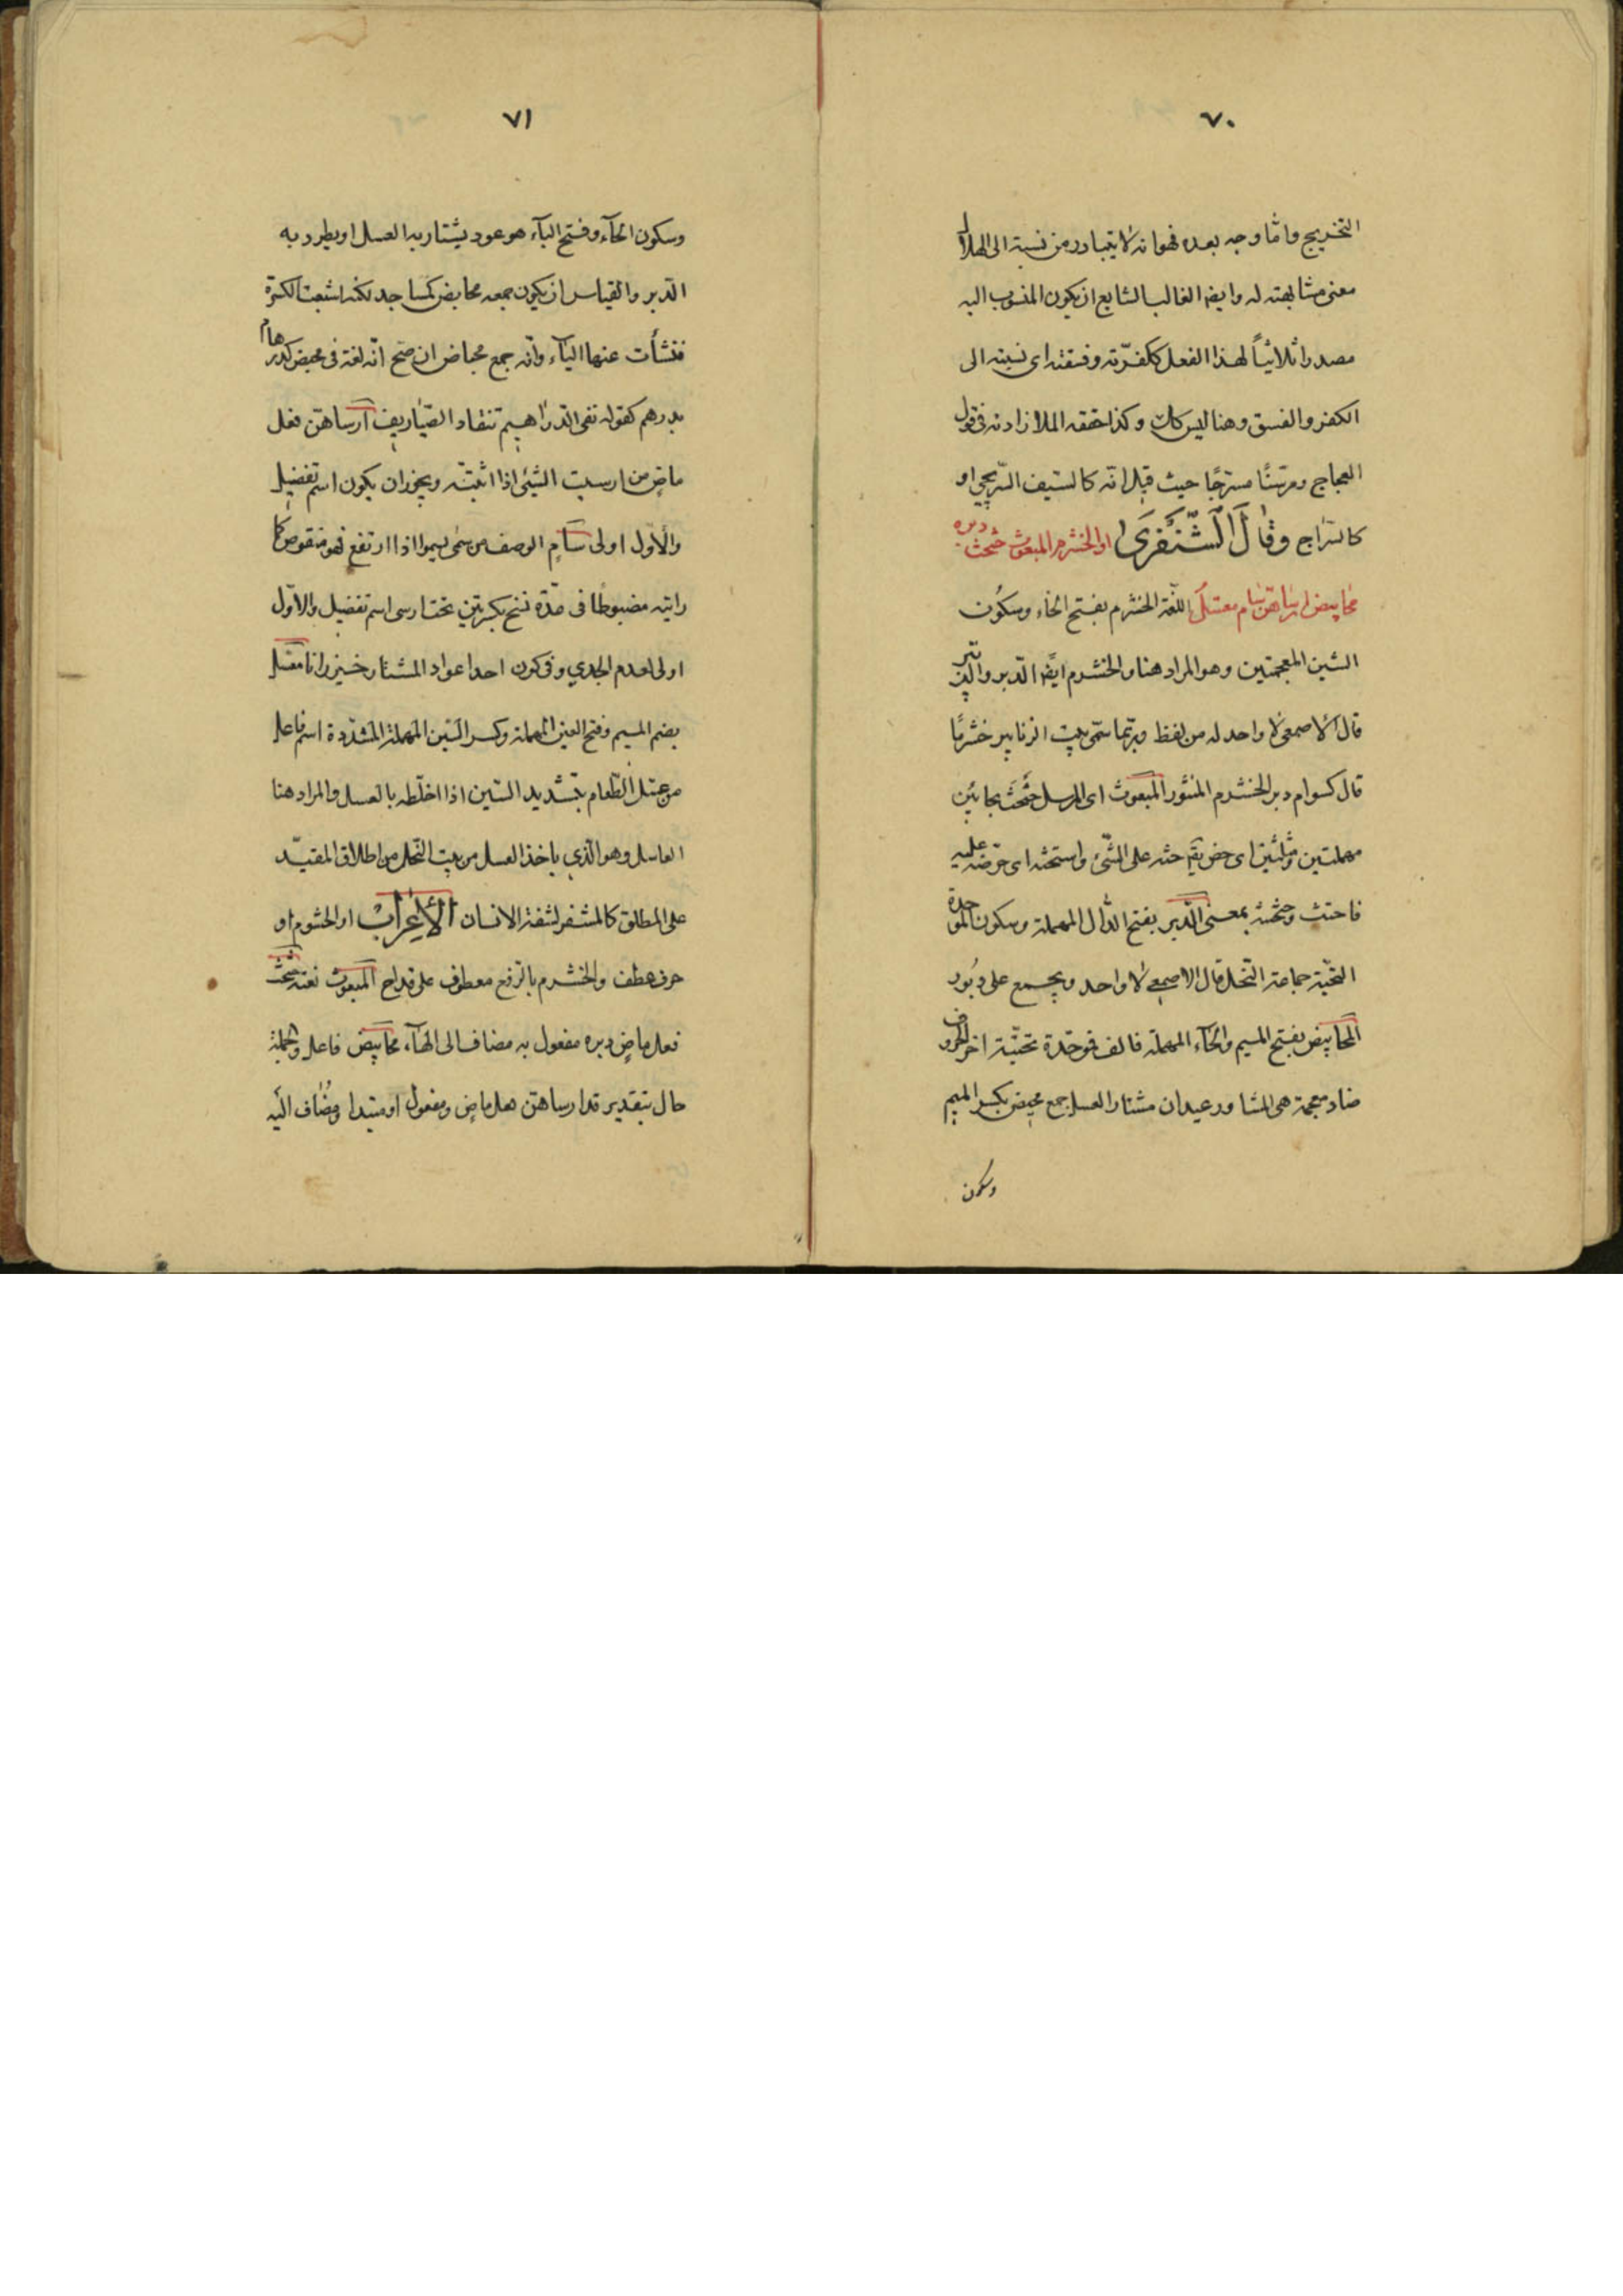 ٧٠
التخريج واما وجه بعده فهو انه لا يتبادر من نسبته الى الهلال
معنى مشابهته له وايضا الغالب الشايع ان يكون المنسوب اليه
مصدرا ثلاثيّاً لهذا الفعل ككفّرته وفسقته اى نسبته الى
الكفر والفسق وهنا ليس كك وكذا حققه الملا زاده فى قول
العجاج ومرسنًا مسرّجًا حيث قيل انه كالسّيف السّريجى او
كالسّراج وقَالَ الشَّنْفَرَى او الخشرم المبعوث حثحث دبره
مَحَابيض ارساهنّ سام معسّل اللّغة الخشرم بفتح الخاء وسكون
الشين المعجمتين وهو المراد هنا والخشرم ايضا الدّبر والزنابير
قال الاصمعى لا واحد له من لفظه وربّما سمّى بيت الزنابير خشرمًا
قال كسوام دبر الخشرم المنثور المبعوث اى المرسل حَثْحَثَ بحائين
مهملتين ومثلثتين اى حض يقَ حثه على الشّئ واستحثه اى حرّضه عليه
فاحتث وحثحثه بمعنى الدّبر بفتح الدال المهملة وسكون الموحدة
التحتيّة جماعة النّحل قال الاصمعى لا واحد ويجمع على دُبُور
المحَابيض بفتح الميم والحاء المهملة فالف فموحّدة تحتيّة اخر الحروف
ضاد معجمة هى المشاور عيدان مشتار العسل جمع محبض بكسر الميم
وسكون
٧١
وسكون الحآء وفتح البآء هو عود يشتار به العسل او يطرد به
الدّبر والقياس ان يكون جمعه محابض كمساجد لكنه اشبعت الكسرة
فنشأت عنها اليآء وانّه جمع محباض ان صّح انّه لغة فى محبض كدرهام
بدرهم كقوله نفى الدّراهيم تنقاد الصّياريف ارساهنّ فعل
ماض من ارسيت الشيئ اذا اثبتّه ويجوز ان يكون اسم تفضيل
والأوّل اولى سَامٍ الوصف من سمى يسموا اذا ارتفع فهو منقوص كما
رايته مضبوطا فى عدّة نسخ بكسرتين تحت ارسى اسم تفضيل والاوّل
اولى لعدم الجدي وفى كون احد اعواد المشتار خيزرانا معسّل
بضم الميم وفتح العين المهملة وكسر السّين المهملة المشدّدة اسم فاعل
من عسّل الطّعام بتشديد السّين اذا اخلطه بالعسل والمراد هنا
العاسل وهو الّذي ياخذ العسل من بيت النّحل من اطلاق المقيّد
على المطلق كالمشفر لشفة الانسان الأَعْرَابُ او الخشرم او
حرف عطف والخشرم بالرّفع معطوف على قداح المبعوث نعته حثحث
فعل ماضٍ دبره مفعول به مضاف الى الهآء محابيض فاعل والجملة
حال بتقدير قد ارساهنّ فعل ماض ومفعول او مبتدا ومُضاف اليه